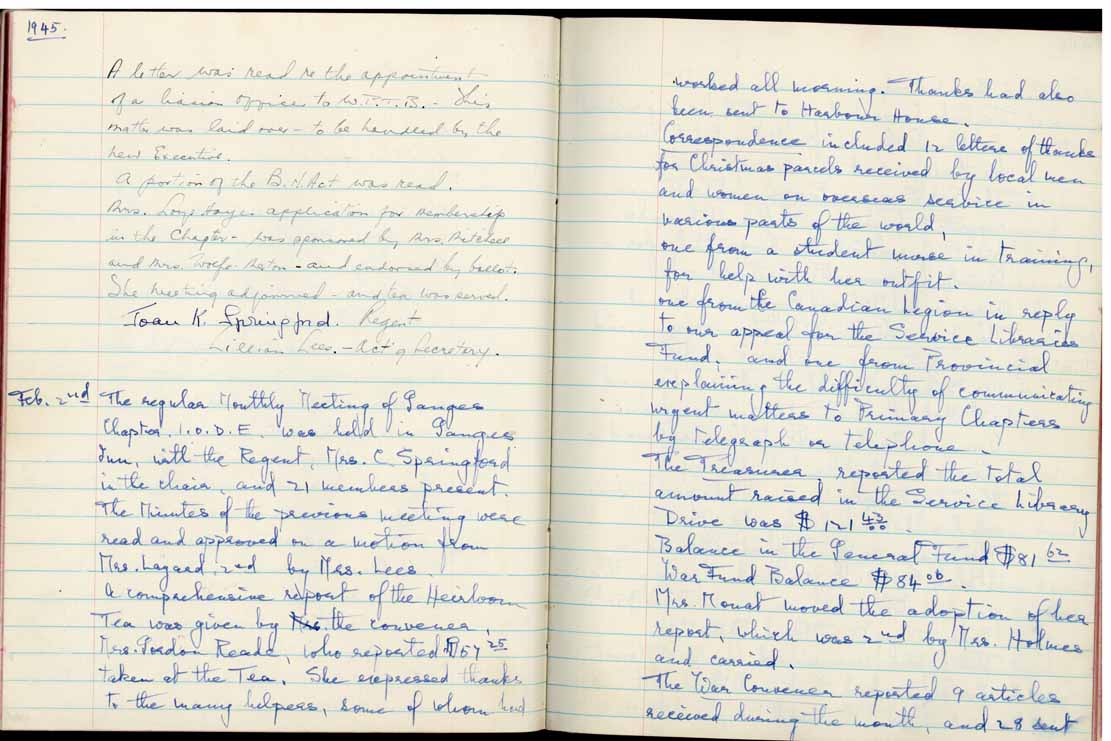 1945.
A letter was read re the appointment
of a liasion officer to W.P.T.B. - This
matter was laid over - to be handled by the
new Executive.
A portion of the B.N. Act was read.
Mrs. application for membership
in the Chapter - was sponsored by Mrs.
and Mrs. Wolfe-Merton - and endorsed by ballot.
The meeting adjourned - and tea was served.
Joan K. Springford. Regent
Lillian Lees. - Act'g Secretary.
Feb. 2nd The regular Monthly Meeting of Ganges
Chapter, I.O.D.E. was held in Ganges
Inn, with the Regent, Mrs. C. Springford
in the chair, and 21 members present.
The Minutes of the previous meeting were
read and approved on a motion from
Mrs. Layard, 2nd by Mrs. Lees.
A comprehensive report of the Heirloom
Tea was given by Mrs. the convener,
Mrs. Gordon Reade, who reported $57 25
taken at the Tea. She expressed thanks
to the many helpers, some of whom had
worked all morning. Thanks had also
been sent to Harbour House.
Correspondence included 12 letters of thanks
for Christmas parcels received by local men
and women on overseas service in
various parts of the world,
one from a student nurse in training,
for help with her outfit.
one from the Canadian Legion in reply
to our appeal for the Service Libraries
Fund, and one from Provincial
explaining the difficulty of communicating
urgent matters to Primary Chapters
by telegraph or telephone.
The Treasurer reported the total
amount raised in the Service Library
Drive was $121 43
Balance in the General Fund $81 62
War Fund Balance $84 06.
Mrs. Mouat moved the adoption of her
report, which was 2nd by Mrs. Holmes
and carried.
The War Convener reported 9 articles
received during the month, and 28 sent